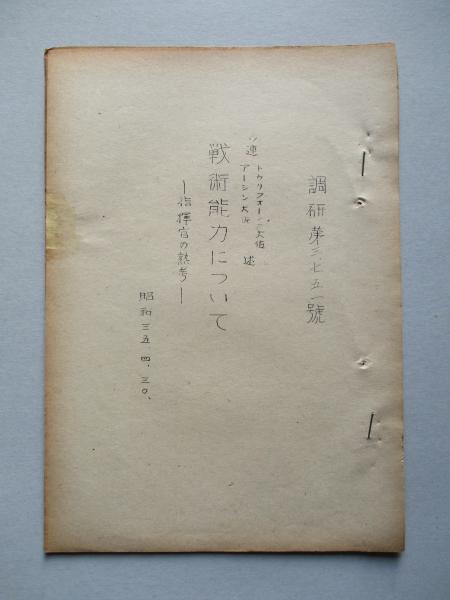 調研第三、七五一號
ソ連 トゥリフォーノフ大佐
アーシン大佐 述
戦術能力について
―指揮官の熟考―
昭和三五、四、三〇、